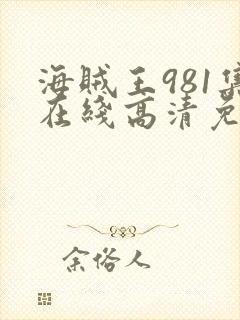 海贼王981集
在线高清免
余俗人